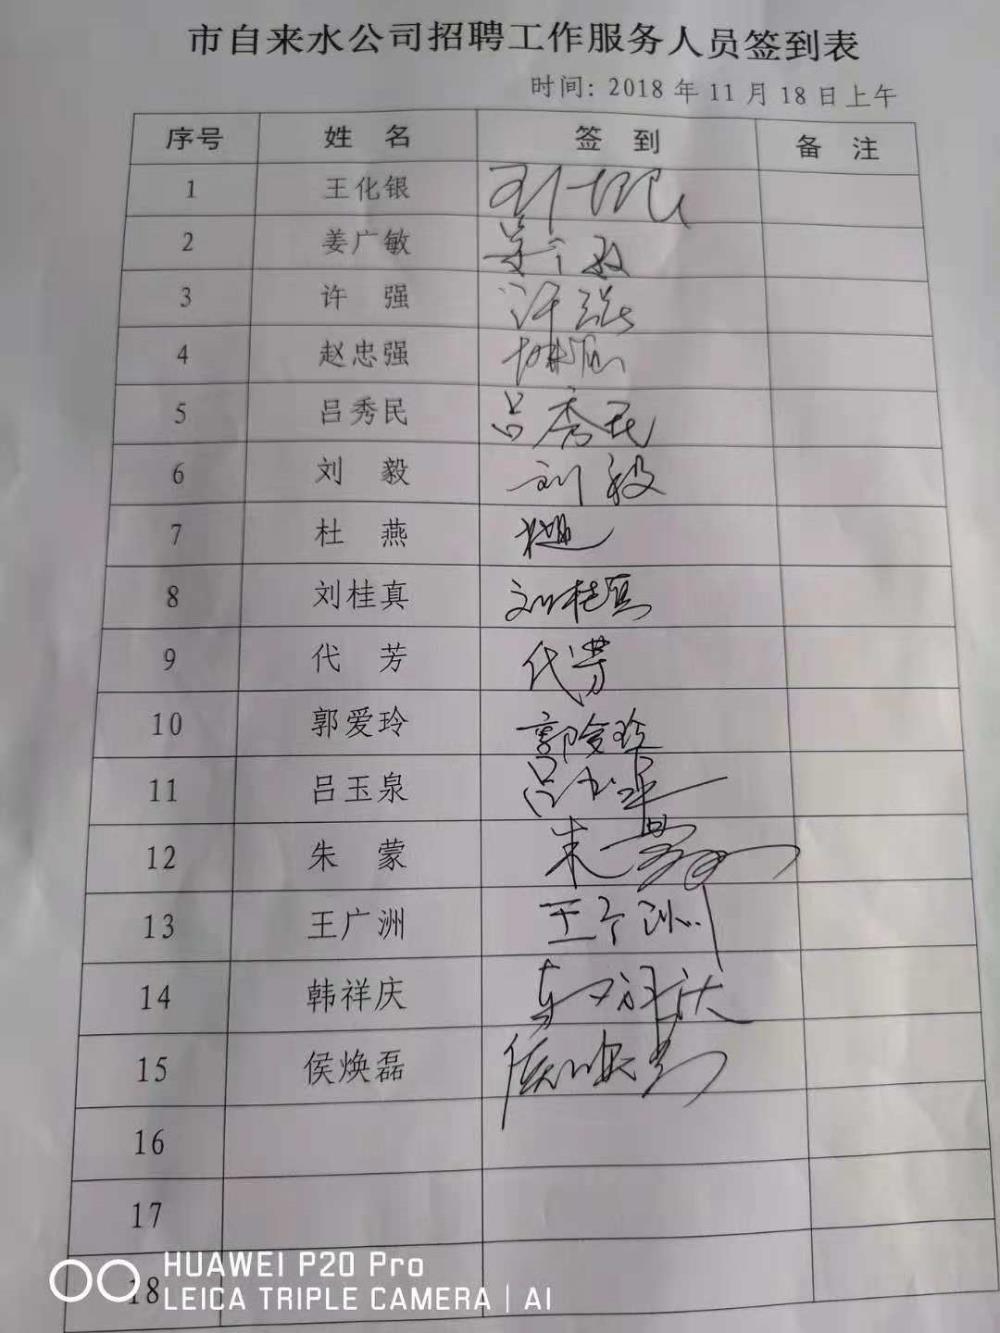 市自来水公司招聘工作服务人员签到表
时间: 2018 年 11 月 18 日上午
序号 姓 名 签 到 备 注
1 王化银
2 姜广敏 姜广敏
3 许 强 许强
4 赵忠强
5 吕秀民 吕秀民
6 刘 毅 刘毅
7 杜 燕
8 刘桂真 刘桂真
9 代 芳 代芳
10 郭爱玲 郭爱玲
11 吕玉泉 吕玉泉
12 朱 蒙 朱蒙
13 王广洲 王广洲
14 韩祥庆 韩祥庆
15 侯焕磊 侯焕磊
16
17
18
HUAWEI P20 Pro
LEICA TRIPLE CAMERA | AI